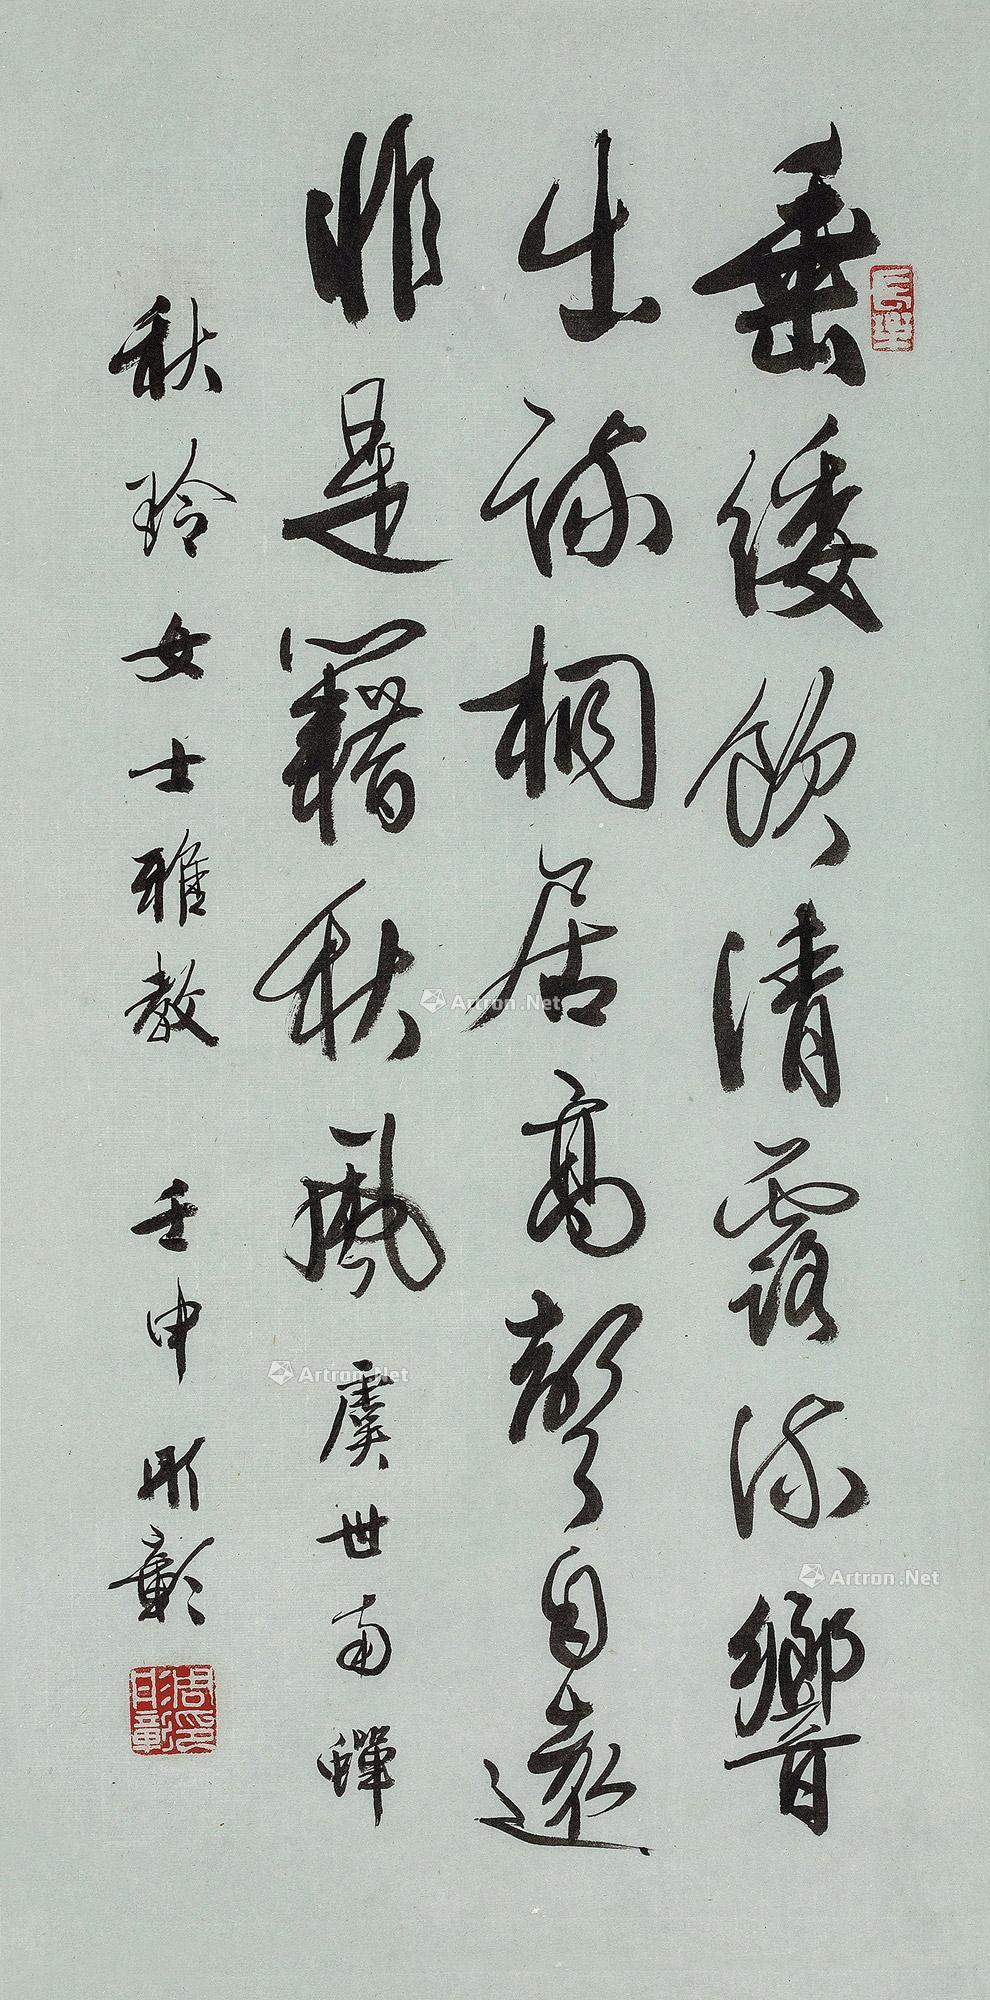 垂緌飲清露流響
出疎桐居高聲自遠
非是籍秋風 虞世南蟬
秋玲女士雅教 壬申 彤彰
Artron.Net
Artron.Net
Artron.Net